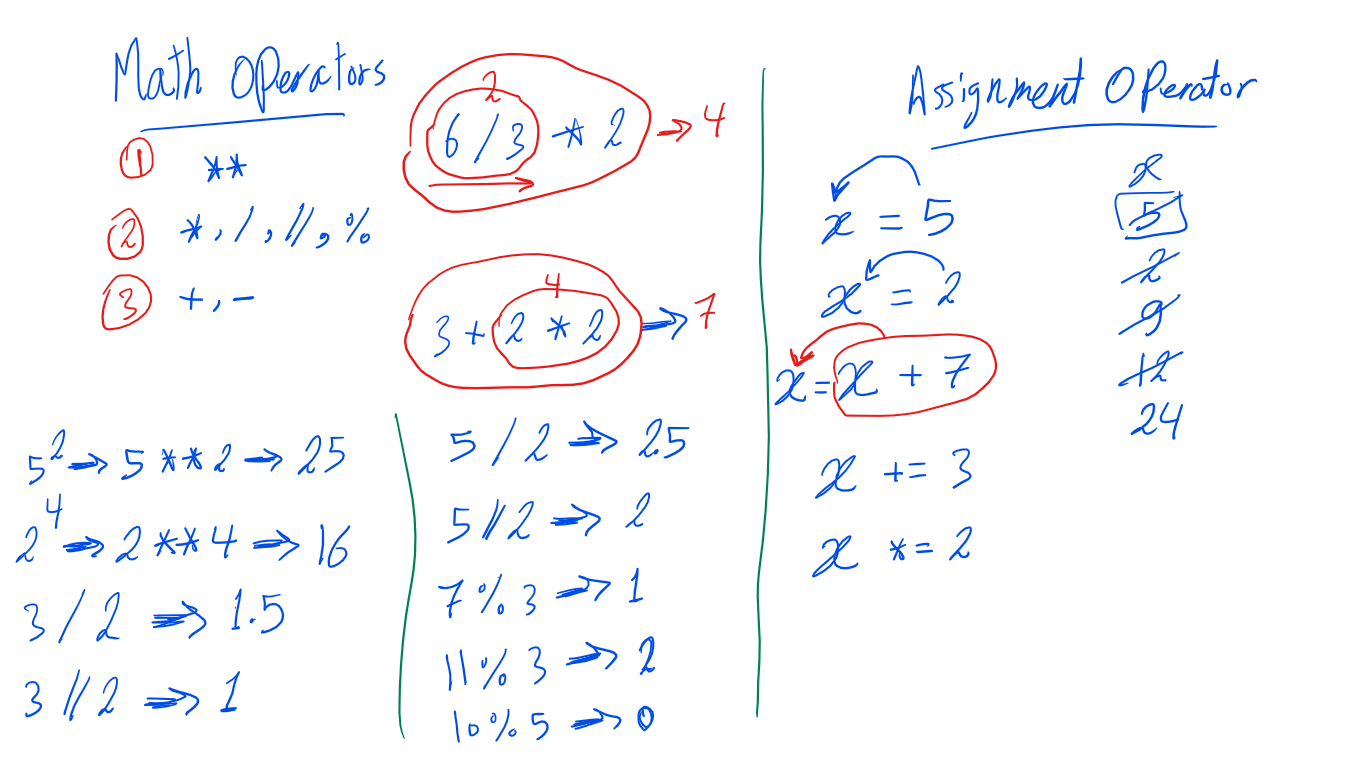 Math Operators
① **
② *, /, //, %
③ +, -
2
6 / 3 * 2 → 4
4
3 + 2 * 2 → 7
5² → 5 ** 2 → 25
2⁴ → 2 ** 4 → 16
3 / 2 → 1.5
3 // 2 → 1
5 / 2 → 2.5
5 // 2 → 2
7 % 3 → 1
11 % 3 → 2
10 % 5 → 0
Assignment Operator
x = 5
x = 2
x = x + 7
x += 3
x *= 2
x
5
2
9
12
24